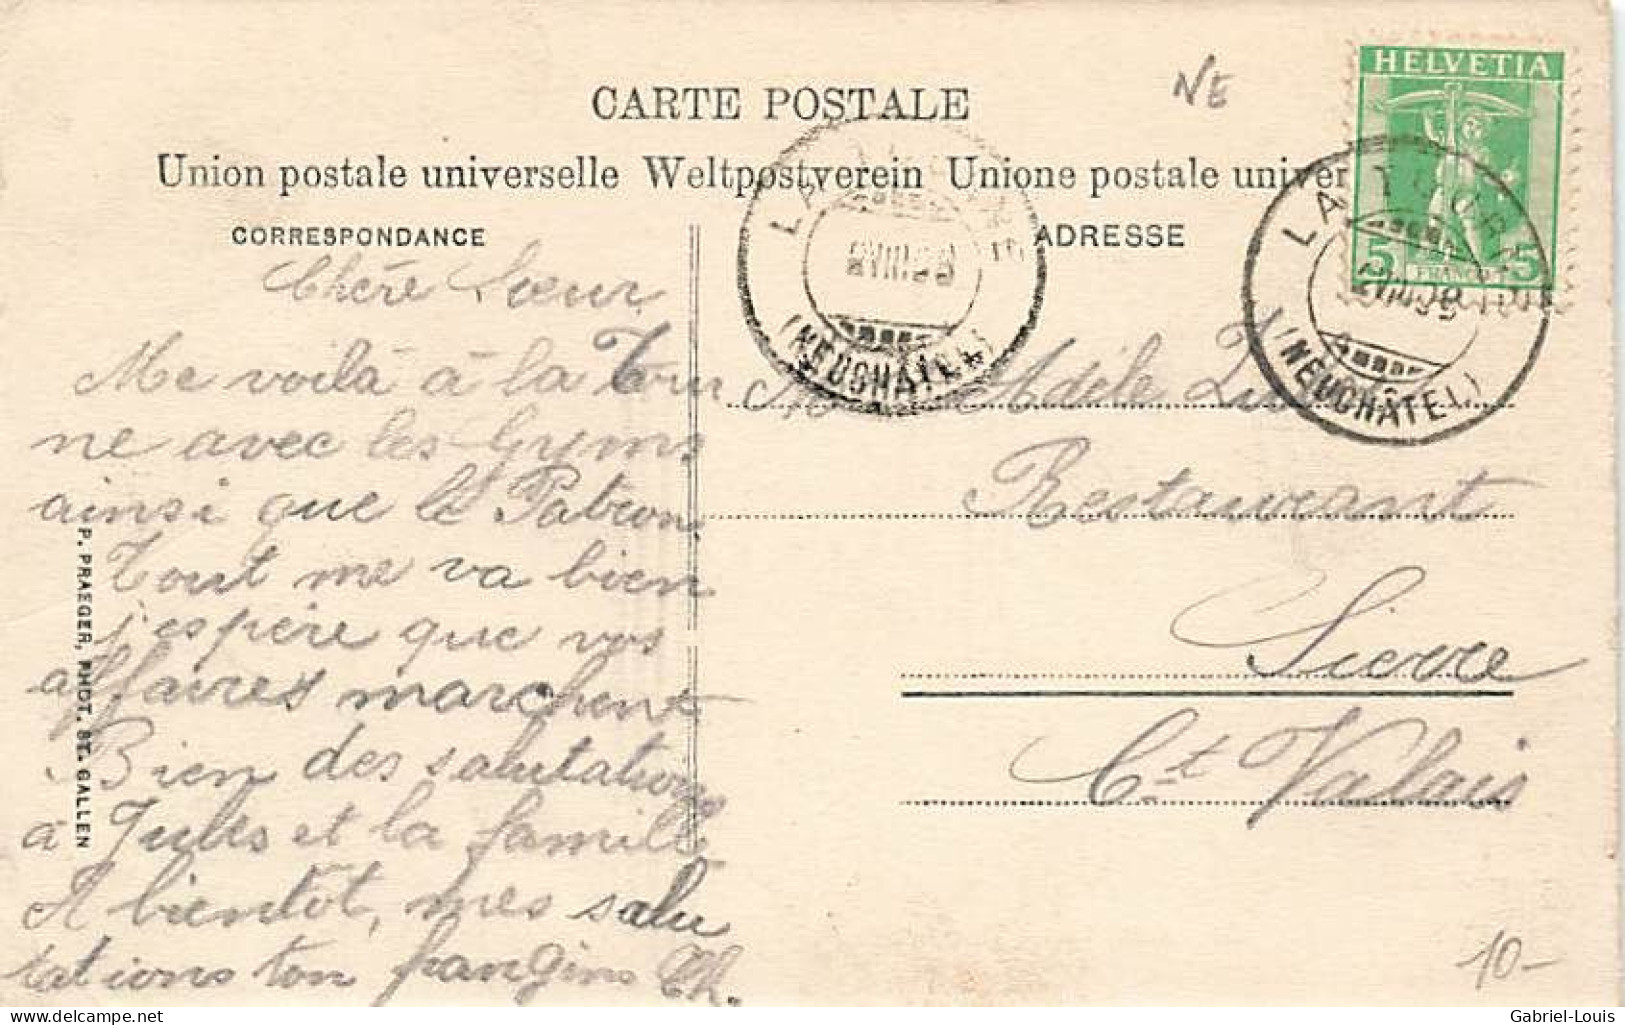 NE
HELVETIA
CARTE POSTALE
Union postale universelle Weltpostverein Unione postale univer
CORRESPONDANCE
ADRESSE
5 FRANCO 5
(NEUCHÂTEL)
(NEUCHÂTEL)
Chère Sœur
Me voilà à la Tour
ne avec les Gyms
ainsi que le Patron,
Tout me va bien
j'espère que vos
affaires marchent
Bien des salutations
à Jules et la famille
A bientôt, mes salu
tations ton frangins Ch.
Adèle
Restaurant
Sierre
Ct Valais
P. PRAEGER, PHOT. ST. GALLEN
10-
delcampe.net
Gabriel-Louis